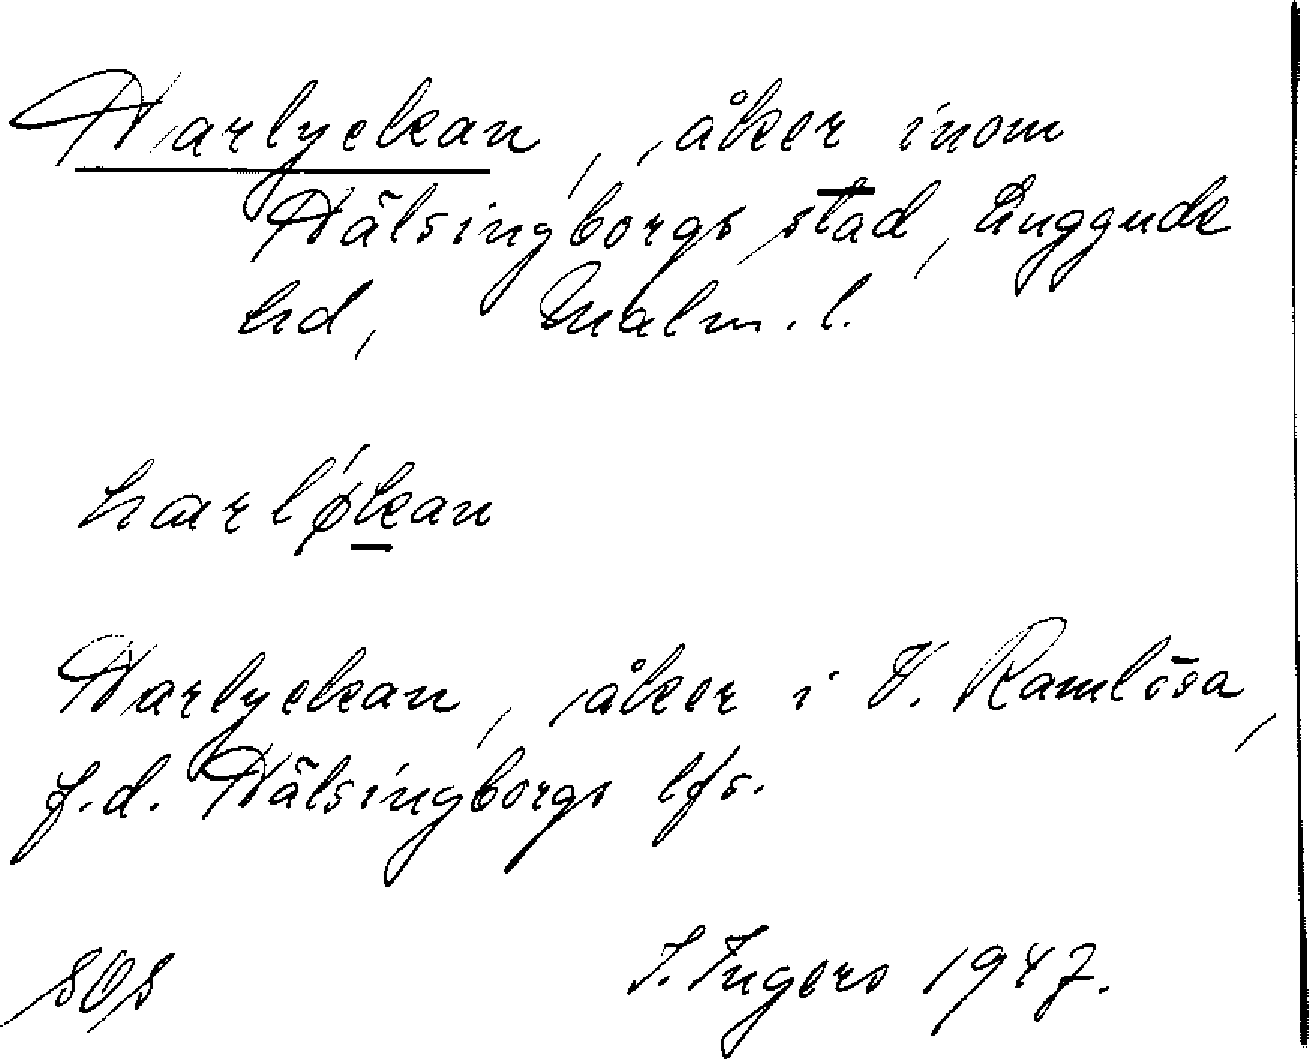 Harlyckan, åker inom
Hälsingborgs stad, Luggude
hd, Malm. l.
harlǿkan
Harlyckan, åker i V. Ramlösa,
f.d. Hälsingborgs lfs.
SOS I. Ingers 1947.